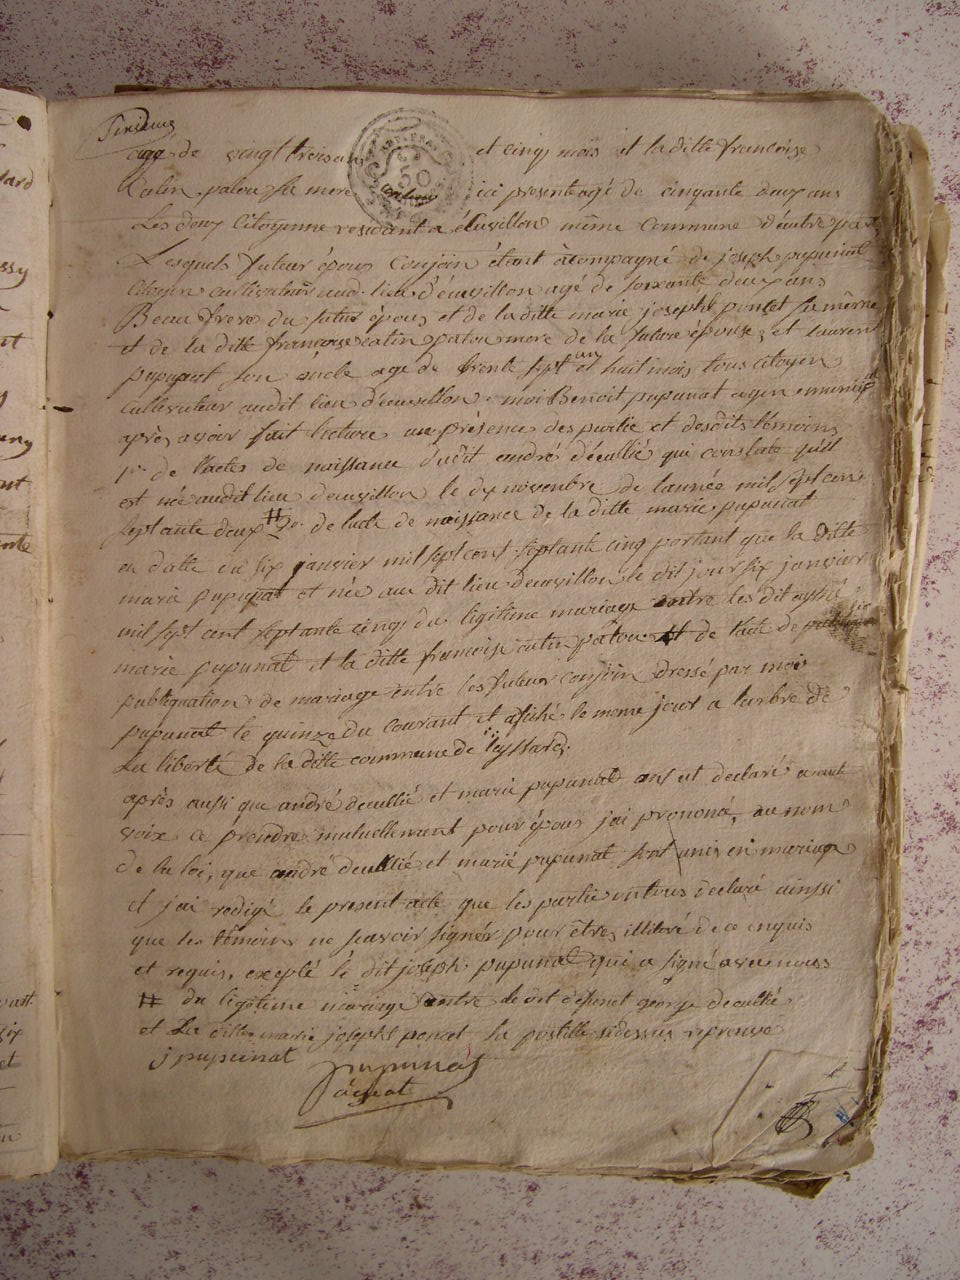 agé de vingt trois ans et cinq mois et la ditte francoise
Catin patou sa mere ici presente agé de cinqante deux ans
Les deux Citoyenne residant a éuvillon même Commune d'autre part
Lesquels futeur époux Conjoin étant acompagné de joseph pupunat
Citoyen cultivateur audit lieu d'éuvillon agé de soixante deux ans
Beau frere du futur époux et de la ditte marie josephe poncet sa mère
et de la ditte francoise catin patou mere de la future épouse, et laurent
pupunat son oncle age de trente sept an et huit mois tous citoyen
Cultivateur audit lieu d'éuvillon moi Benoit pupunat agen municip
après avoir fait lecture en présence des partie et desdits témoins
1° de l'actes de naissance dudit andré décullié qui constate quil
est née audit lieu deuvillon le dix novembre de lannée mil sept cen
septante deux # 2° de lacte de naissance de la ditte marie pupunat
en datte du six janvier mil sept cent septante cinq portant que la ditte
marie pupunat et née au dit lieu deuvillon le dit jour six janvier
mil sept cent septante cinq du legitime mariage entre les dit
marie pupunat et la ditte francoise catin patou et de lacte de
publiquation de mariage entre les futeur conjoin dressé par moi
pupunat le quinze du courant et afiché le meme jour a larbre de
La liberté de la ditte commune de
après aussi que andré decullié et marie pupunat ont declaré a aut
voix ce prendre mutuellement pour époux jai prononcé, au nom
de la loi, que andré decullié et marié pupunat sont unis en mariage
et j'ai redigé le present acte que les partie ont tous declaré ainssi
que les témoins ne scavoir signér pour êtres illitéré de ce enquis
et requis, excepté le dit joseph pupunat qui a signé avec nous
# du legitime mariage entre le dit defunct george decullié
et La ditte marie josephe poncet la postille sidessus reprouvé
j pupunat pupunat